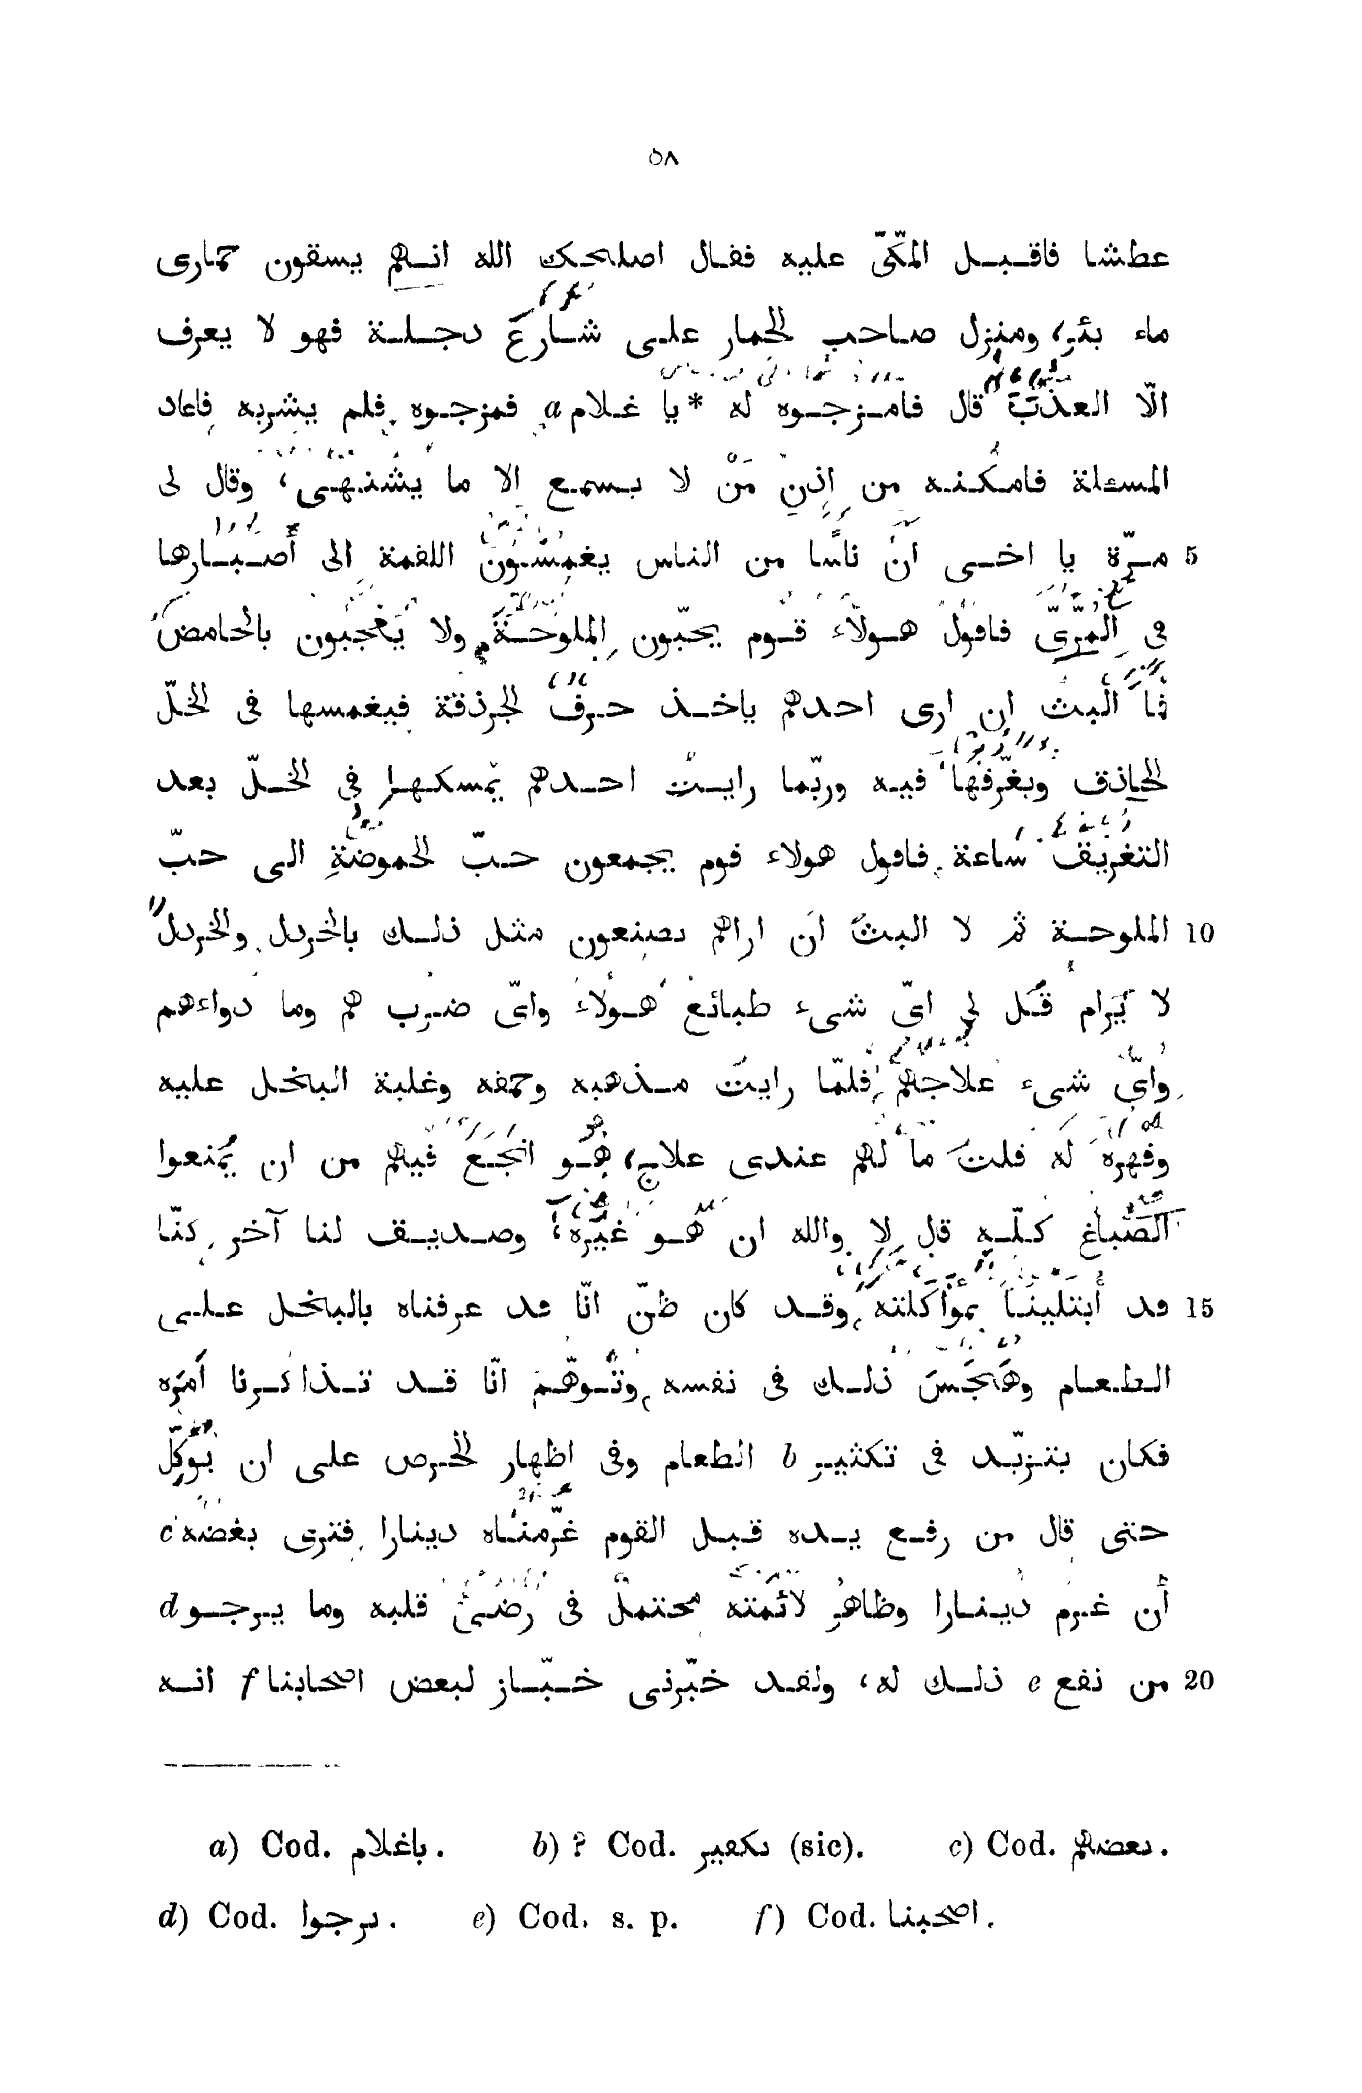 ٥٨
عطشا فاقبل المكّىّ عليه فقال اصلحك الله انهم يسقون حمارى
ماء بئر، ومنزل صاحب الحمار على شارع دجلة فهو لا يعرف
الّا العذب قال فامزجوه له *يا غلام a فمزجوه فلم يشربه فاعاد
المسئلة فامكنه من اذن مَنْ لا يسمع الا ما يشتهى، وقال لى
مرّة يا اخى ان ناسًا من الناس يغمسون اللقمة الى أصبارها 5
فى المُرّىّ فاقول هولاء قوم يحبّون الملوحة ولا يعجبون بالحامض
فما البث ان ارى احدهم ياخذ حرف الجرذقة فيغمسها فى الخلّ
الحاذق ويغرّقها فيه وربّما رايت احدهم يمسكها فى الخلّ بعد
التغريق ساعة فاقول هولاء قوم يجمعون حبّ الحموضة الى حبّ
الملوحة ثم لا البث ان اراهم يصنعون مثل ذلك بالخردل والخردل 10
لا يُرام قُل لى اىّ شىء طبائع هولاء واىّ ضرب هم وما دواءهم
واىّ شىء علاجهم فلمّا رايت مذهبه وحمقه وغلبة البخل عليه
وقهره له قلت ما لهم عندى علاج، هُو انجع فيهم من ان يُمنعوا
الصباغ كلّه قال لا والله ان هو غيره، وصديق لنا آخر كنّا
قد أبتلينا بمؤاكلته وقد كان ظنّ انّا قد عرفناه بالبخل على 15
الطعام وهَجَسَ ذلك فى نفسه وتوهّم انّا قد تذاكرنا أمره
فكان يتزيّد فى تكثير b الطعام وفى اظهار الحرص على ان يُوكل
حتى قال من رفع يده قبل القوم غرّمناه دينارا فترى بغضه c
أن غرم دينارا وظاهر لائمته محتمل فى رضى قلبه وما يرجو d
من نفع e ذلك له، ولقد خبّرنى خبّاز لبعض اصحابنا f انه 20
a) Cod. باغلام. b) ? Cod. ىكعىر (sic). c) Cod. ىعضهم.
d) Cod. ىرجوا. e) Cod. s. p. f) Cod. اصحبنا.